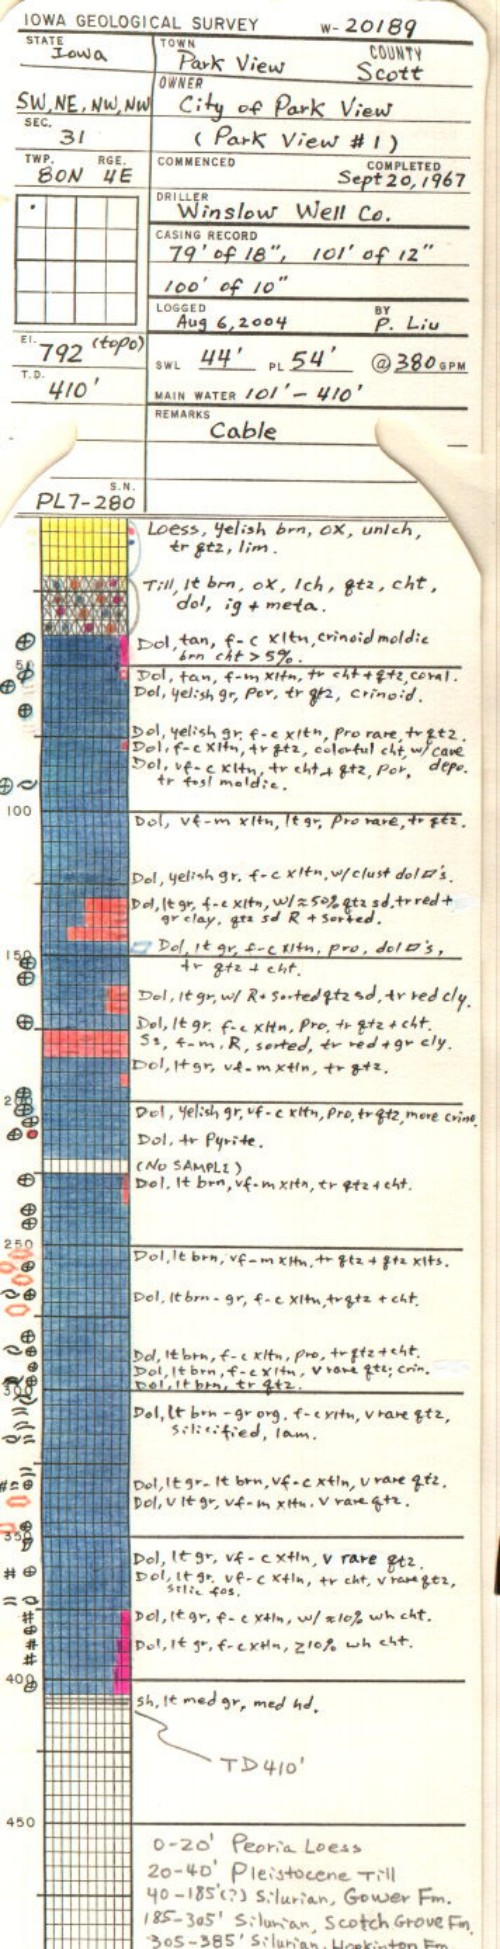 IOWA GEOLOGICAL SURVEY W- 20189
STATE
Iowa
TOWN
Park View
COUNTY
Scott
SW, NE, NW, NW
OWNER
City of Park View
SEC.
31
(Park View #1)
TWP. RGE.
80N 4E
COMMENCED
COMPLETED
Sept 20, 1967
DRILLER
Winslow Well Co.
CASING RECORD
79' of 18", 101' of 12"
100' of 10"
LOGGED
Aug 6, 2004
BY
P. Liu
El.
792 (topo)
SWL 44' PL 54' @ 380 GPM
T.D.
410'
MAIN WATER 101' - 410'
REMARKS
Cable
S.N.
PL7-280
Loess, yelish brn, ox, unlch,
tr qtz, lim.
Till, lt brn, ox, lch, qtz, cht,
dol, ig + meta.
Dol, tan, f-c xltn, crinoid moldic
brn cht > 5%.
50
Dol, tan, f-m xltn, tr cht + qtz, coral.
Dol, yelish gr, por, tr qtz, crinoid.
Dol, yelish gr, f-c xltn, pro rare, tr qtz.
Dol, f-c xltn, tr qtz, colorful cht, w/ cave
depo.
Dol, vf-c xltn, tr cht + qtz, por,
tr fosl moldic.
100
Dol, vf-m xltn, lt gr, pro rare, tr qtz.
Dol, yelish gr, f-c xltn, w/ clust dol ▱'s.
Dol, lt gr, f-c xltn, w/ ≈50% qtz sd, tr red +
gr clay, qtz sd R + sorted.
150
Dol, lt gr, f-c xltn, pro, dol ▱'s,
tr qtz + cht.
Dol, lt gr, w/ R + sorted qtz sd, tr red cly.
Dol, lt gr, f-c xltn, pro, tr qtz + cht.
Ss, f-m, R, sorted, tr red + gr cly.
Dol, lt gr, vf-m xtln, tr qtz.
200
Dol, yelish gr, vf-c xltn, pro, tr qtz, more crino.
Dol, tr Pyrite.
(NO SAMPLE)
Dol, lt brn, vf-m xltn, tr qtz + cht.
250
Dol, lt brn, vf-m xltn, tr qtz + qtz xlts.
Dol, lt brn-gr, f-c xltn, tr qtz + cht.
Dol, lt brn, f-c xltn, pro, tr qtz + cht.
Dol, lt brn, f-c xltn, v rare qtz, crin.
Dol, lt brn, tr qtz.
300
Dol, lt brn-gr org, f-c xltn, v rare qtz,
silicified, lam.
Dol, lt gr-lt brn, vf-c xtln, v rare qtz.
Dol, v lt gr, vf-m xltn, v rare qtz.
350
Dol, lt gr, vf-c xtln, v rare qtz.
Dol, lt gr, vf-c xtln, tr cht, v rare qtz,
silic fos.
Dol, lt gr, f-c xtln, w/ ≈10% wh cht.
Dol, lt gr, f-c xtln, ≥10% wh cht.
400
sh, lt med gr, med hd.
TD 410'
450
0-20' Peoria Loess
20-40' Pleistocene Till
40-185'(?) Silurian, Gower Fm.
185-305' Silurian, Scotch Grove Fm.
305-385' Silurian, Hopkinton Fm